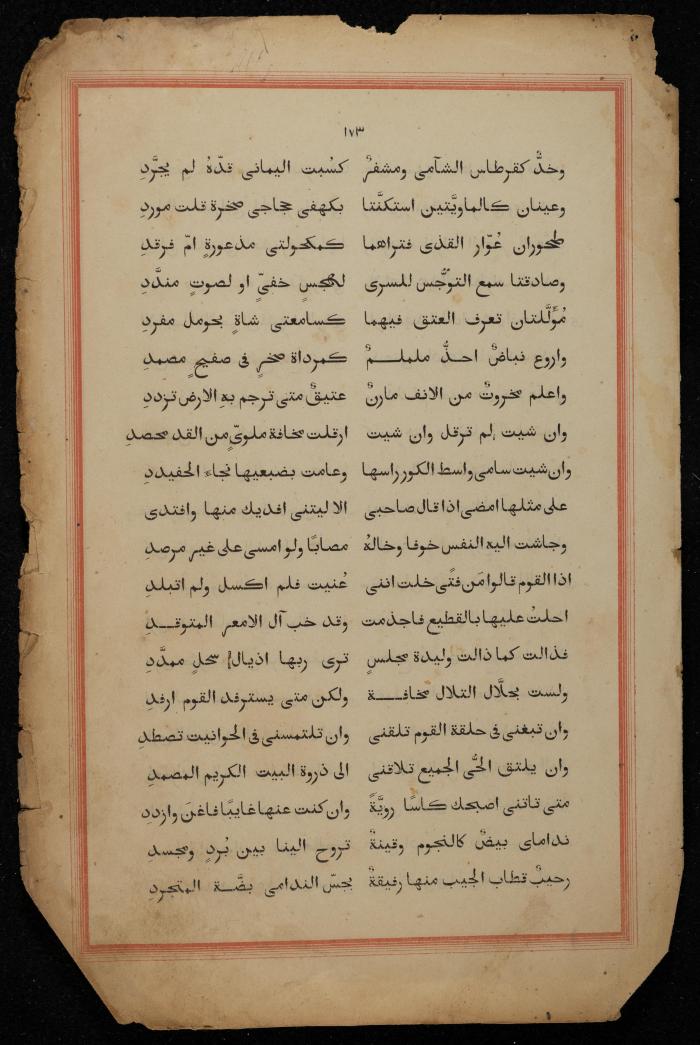 ١٧٣
وخدٌّ كقرطاس الشآمى ومشفرٌ كسْبت اليمانى قدّهُ لم يجرَّدِ
وعينان كالماويَّتين استكنَّتا بكهفى حجاجى صخرة قلت موردِ
طحوران عُوّار القذى فتراهما كمكحولتى مذعورةٍ امّ فرقدِ
وصادقتا سمع التوجُّس للسرى لهجسٍ خفىٍّ او لصوتٍ مندَّدِ
مُوَلَّلتان تعرف العتق فيهما كسامعتى شاةٍ بحومل مفردِ
واروع نباضٌ احذُّ ململمٌ كمرداة صخرٍ فى صفيحٍ مصمدِ
واعلم مخروتٌ من الانف مارنٌ عتيقٌ متى ترجم بهِ الارض تزددِ
وان شيت لم ترقل وان شيت ارقلت مخافة ملوىٍّ من القد محصدِ
وان شيت سامى واسط الكور راسها وعامت بضبعيها نجاء الحفيددِ
على مثلها امضى اذا قال صاحبى الا ليتنى افديك منها وافتدى
وجاشت اليه النفس خوفا وخالهُ مصابًا ولو امسى على غير مرصدِ
اذا القوم قالوا مَن فتًى خلت اننى عُنيت فلم اكسل ولم اتبلدِ
احلتُ عليها بالقطيع فاجذمت وقد خب آل الامعر المتوقدِ
فذالت كما ذالت وليدة مجلسٍ ترى ربها اذيال سحلٍ ممدَّدِ
ولست بحلَّال التلال مخافة ولكن متى يسترفد القوم ارفدِ
وان تبغنى فى حلقة القوم تلقنى وان تلتمسنى فى الحوانيت تصطدِ
وان يلتق الحُّى الجميع تلاقنى الى ذروة البيت الكريم المصمدِ
متى تاتنى اصبحك كاسًا رويَّةً وان كنت عنها غايبًا فاغنَ وازددِ
نداماى بيضٌ كالنجوم وقينةٌ تروح الينا بين بُردٍ ومجسدِ
رحيبٌ قطاب الجيب منها رفيقةٌ بجسّ الندامى بضَّة المتجردِ